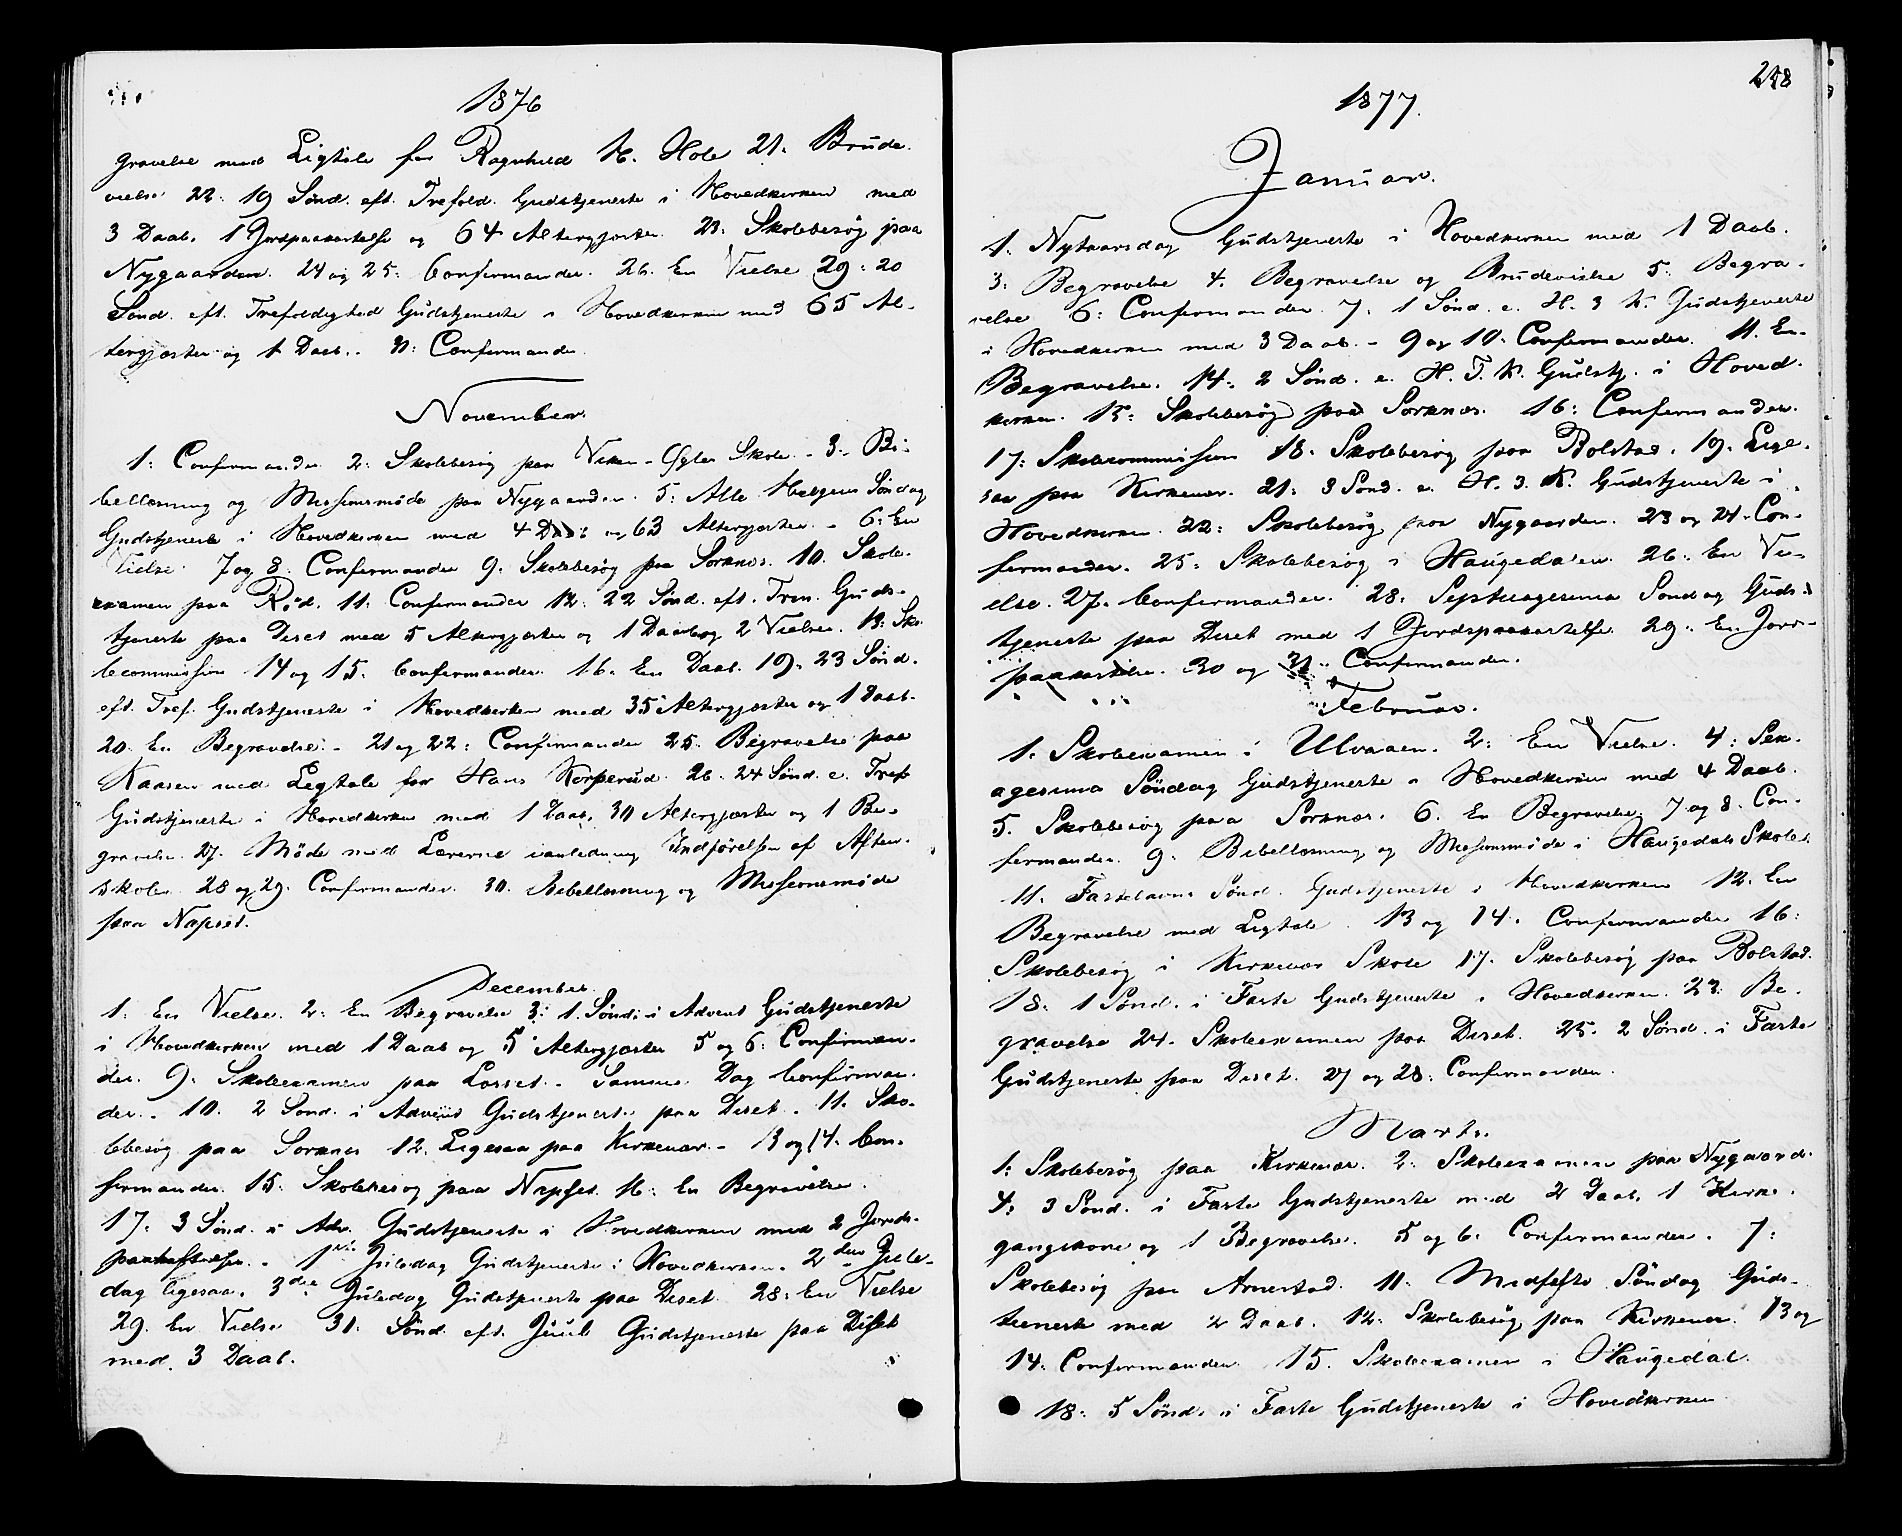 1876
gravelse med Ligtale for Ragnhild H. Hole 21. Brude-
vielse 22: 19 Sønd. eft. Trefold. Gudstjeneste i Hovedkirken med
3 Daab, 1 Jordpaakastelse og 64 Altergjæster. 23: Skolebesøg paa
Nygaarden. 24 og 25: Confirmander. 26. En Vielse 29: 20
Sønd. eft. Trefoldighed Gudstjeneste i Hovedkirken med 65 Al-
tergjæster og 1 Daab. 31: Confirmander.
November.
1: Confirmander 2: Skolebesøg paa Viken-Øgler Skole. 3. Bi-
bellæsning og Missionsmöde paa Nygaarden. 5: Alle Helgens Søndag
Gudstjeneste i Hovedkirken med 4 Daab og 63 Altergjæster. 6: En
Vielse. 7 og 8. Confirmander 9. Skolebesøg paa Sorknæs. 10. Skole-
examen paa Rød. 11. Confirmander 12: 22 Sønd. eft. Tren. Guds-
tjeneste paa Deset med 5 Altergjæster og 1 Daab og 2 Vielser. 13: Sko-
lecommission 14 og 15. Confirmander. 16. En Daab. 19. 23 Sønd.
eft. Tref. Gudstjeneste i Hovedkirken med 35 Altergjæster og 1 Daab.
20. En Begravelse. 21 og 22: Confirmander 25. Begravelse paa
Kaasen med Ligtale for Hans Korperud. 26. 24 Sønd. e. Tref
Gudstjeneste i Hovedkirken med 1 Daab, 30 Altergjæster og 1 Be-
gravelse. 27. Möde med Lærerne i anledning Indførelsen af Aften-
skoler 28 og 29. Confirmander. 30. Bibellæsning og Missionsmöde
paa Napset.
December.
1. En Vielse. 2: En Begravelse 3: 1. Sønd. i Advent Gudstjeneste
i Hovedkirken med 1 Daab og 5 Altergjæster 5 og 6: Confirman-
der. 9. Skoleexamen paa Losset. Samme Dag Confirman-
der. 10. 2 Sønd. i Advent Gudstjeneste paa Deset. 11. Sko-
lebesøg paa Sorknæs 12. Ligesaa paa Kirkevær. 13 og 14. Con-
firmander. 15. Skolebesøg paa Napset. 16: En Begravelse.
17. 3 Sønd. i Adv. Gudstjeneste i Hovedkirken med 2 Jords-
paakastelser. 1ste Juledag Gudstjeneste i Hovedkirken. 2den Jule-
dag ligesaa. 3die Juledag Gudstjeneste paa Deset. 28: En Vielse
29. En Vielse 31. Sønd. eft. Juul Gudstjeneste paa Deset
med 3 Daab.
1877.
Januar.
1. Nytaarsdag Gudstjeneste i Hovedkirken med 1 Daab.
3. Begravelse 4. Begravelse og Brudevielse 5. Begra-
velse 6: Confirmander. 7. 1 Sønd. e. H. 3 K. Gudstjeneste
i Hovedkirken med 3 Daab. 9 og 10. Confirmander. 11. En
Begravelse. 14. 2 Sønd. e. H. T. K. Gudstj. i Hoved-
kirken. 15: Skolebesøg paa Sorknæs. 16: Confirmander.
17: Skolecommission 18. Skolebesøg paa Bolstad. 19. Lige-
saa paa Kirkevær. 21: 3 Sønd. e. H. 3. K. Gudstjeneste i
Hovedkirken. 22: Skolebesøg paa Nygaarden. 23 og 24. Con-
firmander. 25: Skolebesøg i Haugedalen. 26. En Vi-
else. 27. Confirmander. 28. Septuagesima Søndag Guds-
tjeneste paa Deset med 1 Jordspaakastelse 29. En Jord-
paakastelse. 30 og 31. Confirmander.
Februar.
1. Skoleexamen i Ulvaaen. 2: En Vielse. 4: Sex-
agesima Søndag Gudstjeneste i Hovedkirken med 4 Daab.
5. Skolebesøg paa Sorknæs. 6. En Begravelse 7 og 8. Con-
firmander. 9. Bibellæsning og Missionsmöde i Haugedals Skole.
11. Fastelavns Sønd. Gudstjeneste i Hovedkirken 12. En
Begravelse med Ligtale. 13 og 14. Confirmander 16:
Skolebesøg i Kirkevær Skole 17. Skolebesøg paa Bolstad.
18. 1 Sønd. i Faste Gudstjeneste i Hovedkirken. 23. Be-
gravelse 24. Skoleexamen paa Deset. 25. 2 Sønd. i Faste
Gudstjeneste paa Deset. 27 og 28: Confirmander.
Marts.
1. Skolebesøg paa Kirkevær. 2. Skoleexamen paa Nygaard.
4: 3 Sønd. i Faste Gudstjeneste med 2 Daab, 1 Kirke-
gangskone og 1 Begravelse. 5 og 6. Confirmander. 7:
Skolebesøg paa Arnestad. 11. Midfaste Søndag Guds-
tjeneste med 2 Daab. 12. Skolebesøg paa Kirkevær. 13 og
14. Confirmander. 15. Skoleexamen i Haugedal.
18: 5 Sønd. i Faste Gudstjeneste i Hovedkirken